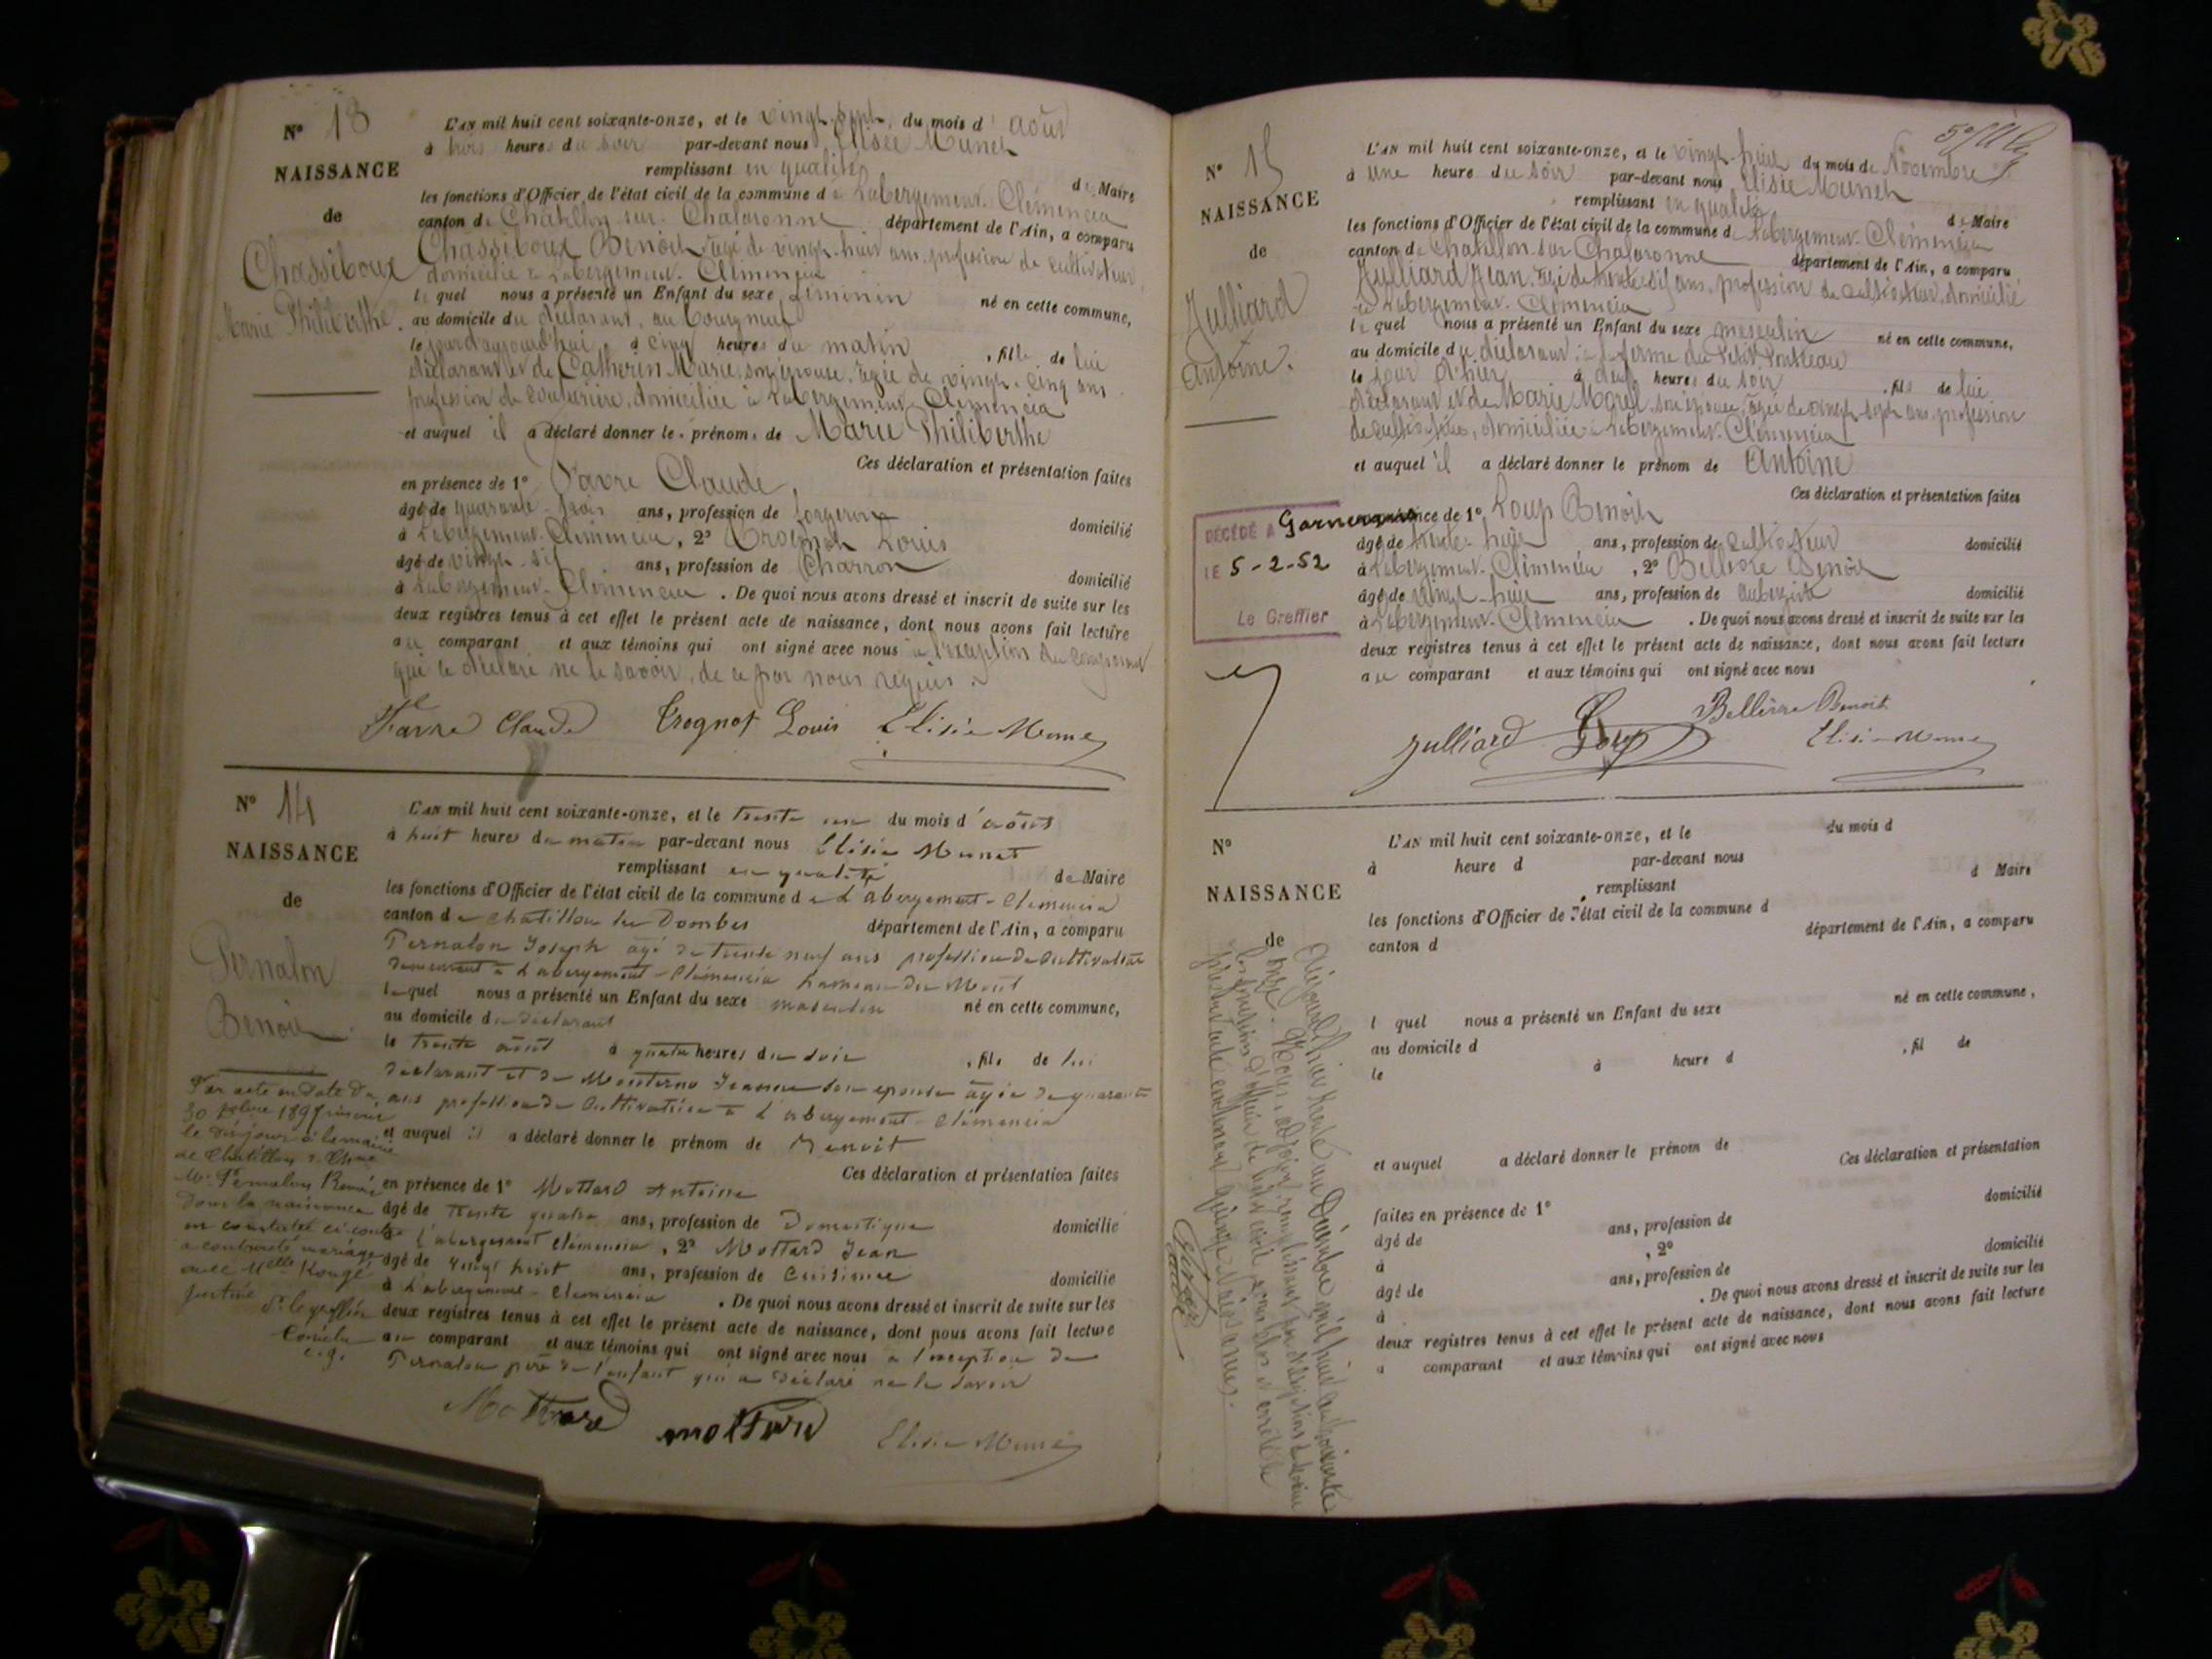 N° 13
NAISSANCE
de
Chassiboux
Marie Philiberthe.
L'AN mil huit cent soixante-onze, et le vingt-sept, du mois d'août
à trois heures du soir par-devant nous Elisée Munet
remplissant en qualité de Maire
les fonctions d'Officier de l'état civil de la commune de Labergement-Clémencia
canton de Châtillon sur Chalaronne département de l'Ain, a comparu
Chassiboux Benoit âgé de vingt-huit ans, profession de cultivateur
domicilié à Labergement-Clémencia
lequel nous a présenté un Enfant du sexe féminin né en cette commune,
au domicile du déclarant, au bourg
le jourd'aujourd'hui, à cinq heures du matin, fille de lui
déclarant et de Catherin Marie, son épouse, âgée de vingt-cinq ans
profession de couturière, domiciliée à Labergement-Clémencia
et auquel il a déclaré donner les prénoms de Marie Philiberthe
Ces déclaration et présentation faites
en présence de 1° Favre Claude,
âgé de quarante-trois ans, profession de forgeron domicilié
à Labergement-Clémencia, 2° Trognot Louis
âgé de vingt-six ans, profession de Charron domicilié
à Labergement-Clémencia. De quoi nous avons dressé et inscrit de suite sur les
deux registres tenus à cet effet le présent acte de naissance, dont nous avons fait lecture
au comparant et aux témoins qui ont signé avec nous à l'exception du comparant
qui a déclaré ne le savoir, de ce par nous requis.
Favre Claude Trognot Louis Elisée Munet
N° 14
NAISSANCE
de
Pernalon
Benoit
L'AN mil huit cent soixante-onze, et le trente un du mois d'août
à huit heures du matin par-devant nous Elisée Munet
remplissant en qualité de Maire
les fonctions d'Officier de l'état civil de la commune de Labergement-Clémencia
canton de Châtillon les Dombes département de l'Ain, a comparu
Pernalon Joseph âgé de trente neuf ans profession de Cultivateur
demeurant à Labergement-Clémencia hameau du Mont
lequel nous a présenté un Enfant du sexe masculin né en cette commune,
au domicile du déclarant
le trente août à quatre heures du soir, fils de lui
déclarant et de Monterno Jeanne son épouse âgée de quarante
ans profession de Cultivatrice à L'abergement-Clémencia
et auquel il a déclaré donner le prénom de Benoit
Ces déclaration et présentation faites
en présence de 1° Mottard Antoine
âgé de trente quatre ans, profession de Domestique domicilié
à L'abergement Clémencia, 2° Mottard Jean
âgé de vingt huit ans, profession de domicilié
à L'abergement-Clémencia. De quoi nous avons dressé et inscrit de suite sur les
deux registres tenus à cet effet le présent acte de naissance, dont nous avons fait lecture
au comparant et aux témoins qui ont signé avec nous à l'exception de
Pernalon père de l'enfant qui a déclaré ne le savoir
Mottard mottard Elisée Munet
Par acte en date du
30
le dix jour à la mairie
de Châtillon s. Chne
Mr Pernalon Benoit
dont la naissance
est constatée ci-contre
a contracté mariage
avec Melle Rougé
Justine
N° 15
NAISSANCE
de
Julliard
Antoine.
L'AN mil huit cent soixante-onze, et le vingt-huit du mois de Novembre
à une heure du soir par-devant nous Elisée Munet
remplissant en qualité de Maire
les fonctions d'Officier de l'état civil de la commune de Labergement-Clémencia
canton de Châtillon-sur-Chalaronne département de l'Ain, a comparu
Julliard Jean, âgé de trente-six ans, profession de cultivateur, domicilié
à Labergement-Clémencia
lequel nous a présenté un Enfant du sexe masculin né en cette commune,
au domicile du déclarant, à la ferme du Petit
le jour d'hier à deux heures du soir, fils de lui
déclarant et de Marie Morel, son épouse, âgée de vingt-sept ans, profession
de cultivatrice, domiciliée à Labergement-Clémencia
et auquel il a déclaré donner le prénom de Antoine
Ces déclaration et présentation faites
en présence de 1° Loup Benoit
âgé de trente-huit ans, profession de cultivateur domicilié
à Labergement-Clémencia, 2° Bellisse Benoit
âgé de vingt-huit ans, profession de aubergiste domicilié
à Labergement-Clémencia. De quoi nous avons dressé et inscrit de suite sur les
deux registres tenus à cet effet le présent acte de naissance, dont nous avons fait lecture
au comparant et aux témoins qui ont signé avec nous
DÉCÉDÉ A Garnerans
LE 5-2-52
Le Greffier
Julliard Loup Benoit Elisée Munet
N°
NAISSANCE
de
L'AN mil huit cent soixante-onze, et le du mois d
à heure d par-devant nous
remplissant d Maire
les fonctions d'Officier de l'état civil de la commune d
canton d département de l'Ain, a comparu
l quel nous a présenté un Enfant du sexe né en cette commune,
au domicile d
le à heure d, fil de
et auquel a déclaré donner le prénom de
Ces déclaration et présentation
faites en présence de 1°
âgé de ans, profession de domicilié
à, 2°
âgé de ans, profession de domicilié
à. De quoi nous avons dressé et inscrit de suite sur les
deux registres tenus à cet effet le présent acte de naissance, dont nous avons fait lecture
a comparant et aux témoins qui ont signé avec nous
Aujourd'hui trente un Décembre mil huit cent soixante
onze. Nous, adjoint remplissant par délégation de Maire
les fonctions d'officier de l'état civil, avons clos et arrêté le
présent acte contenant quinze Naissances.